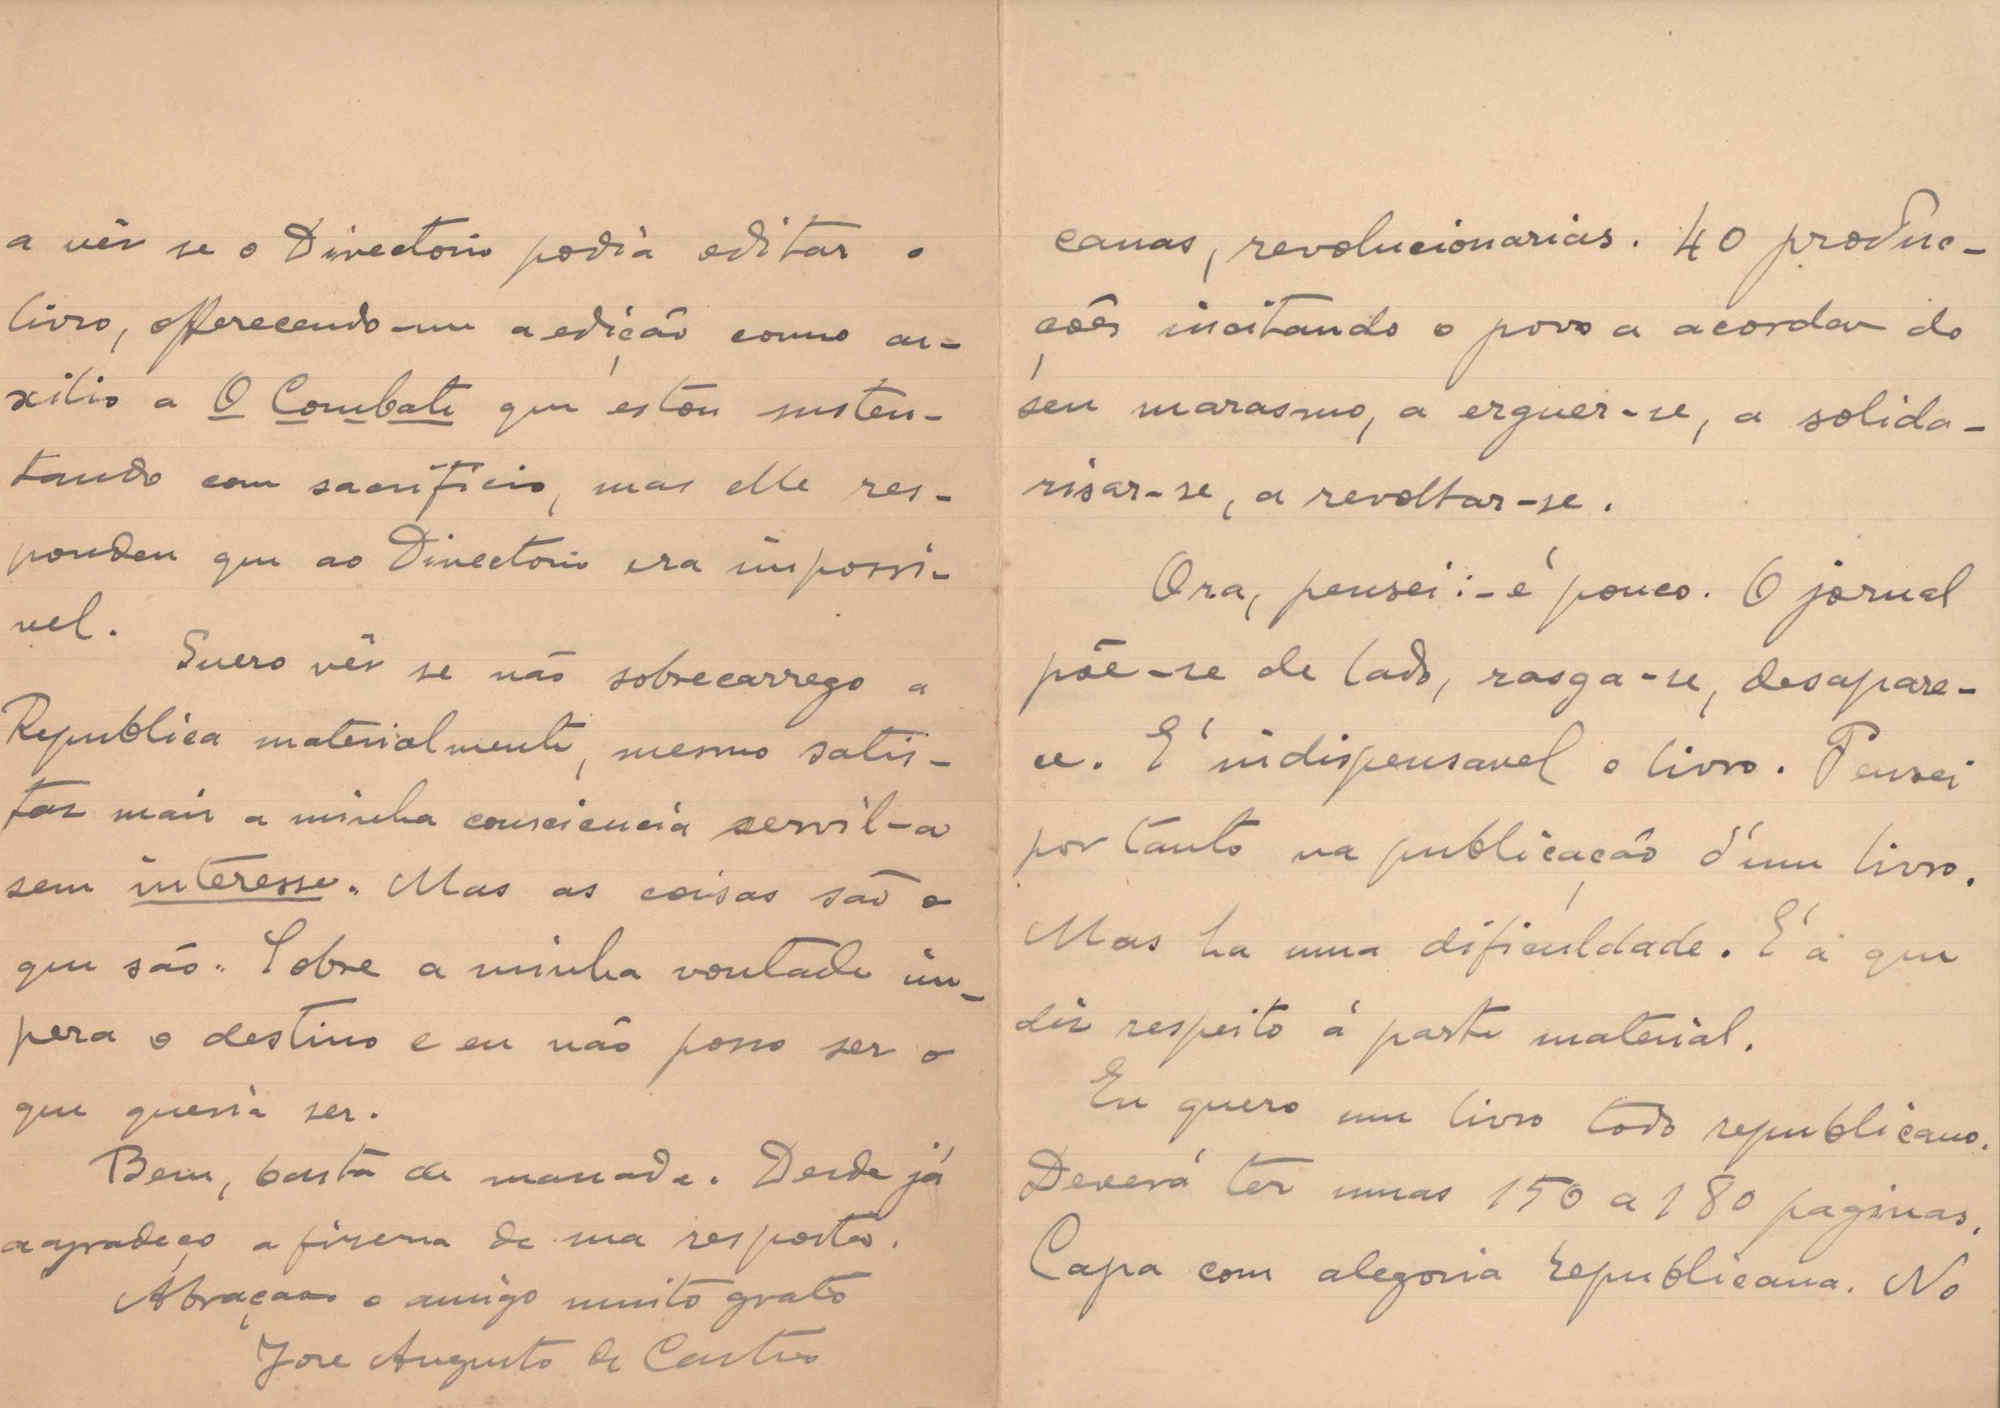 a vêr se o Directorio podia editar o
livro, offerecendo-me a edição como au-
xilio a O Combate que estou susten-
tando com sacrificio, mas elle res-
pondeu que ao Directorio era impossi-
vel.
Quero vêr se não sobrecarrego a
Republica materialmente, mesmo satis-
faz mais a minha consciencia servil-a
sem interesse. Mas as coisas são o
que são. Sobre a minha vontade im-
pera o destino e eu não posso ser o
que queria ser.
Bem, basta de massada. Desde já
agradeço a fineza de sua resposta.
Abraça-o o amigo muito grato
José Augusto de Castro
canas, revolucionarias. 40 produc-
ções incitando o povo a acordar do
seu marasmo, a erguer-se, a solida-
risar-se, a revoltar-se.
Ora, pensei:-é pouco. O jornal
põe-se de lado, rasga-se, desapare-
ce. É indispensavel o livro. Pensei
por tanto na publicação d'um livro.
Mas ha uma dificuldade. É a que
diz respeito á parte material.
Eu quero um livro todo republicano.
Deverá ter umas 150 a 180 paginas.
Capa com alegoria republicana. No